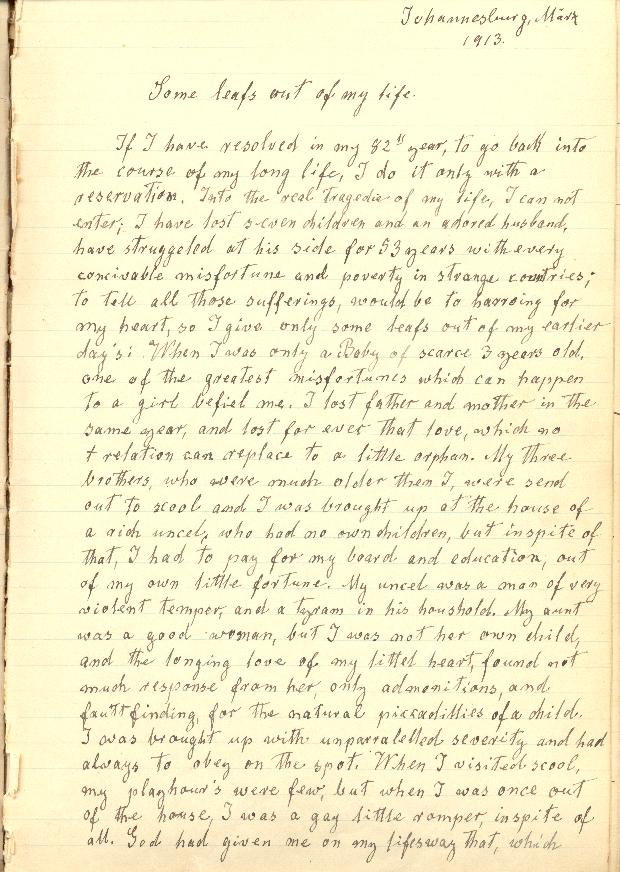 Johannesburg, März
1913.
Some leafs out of my life.
If I have resolved in my 82th year, to go back into
the course of my long life, I do it only with a
reservation. Into the real tragedie of my life, I can not
enter; I have lost seven children and an adored husband,
have struggeled at his side for 53 years with every
concivable misfortune and poverty in strange countries;
to tell all those sufferings, would be to harroing for
my heart, so I give only some leafs out of my earlier
day's: When I was only a Baby of scarce 3 years old,
one of the greatest misfortunes which can happen
to a girl befiel me. I lost father and mother in the
same year, and lost for ever that love, which no
relation can replace to a little orphan. My three
brothers, who were much older then I, were send
out to scool and I was brought up at the house of
a rich uncel, who had no own children, but inspite of
that, I had to pay for my board and education, out
of my own little fortune. My uncel was a man of very
violent temper, and a tyram in his houshold. My aunt
was a good woman, but I was not her own child,
and the longing love of my littel heart, found not
much response from her, only admonitions, and
faultfinding, for the natural piccadillies of a child.
I was brought up with unparralelled severity and had
always to obey on the spot. When I visited scool,
my playhour's were few, but when I was once out
of the house, I was a gay little romper, inspite of
all. God had given me on my lifesway that, which